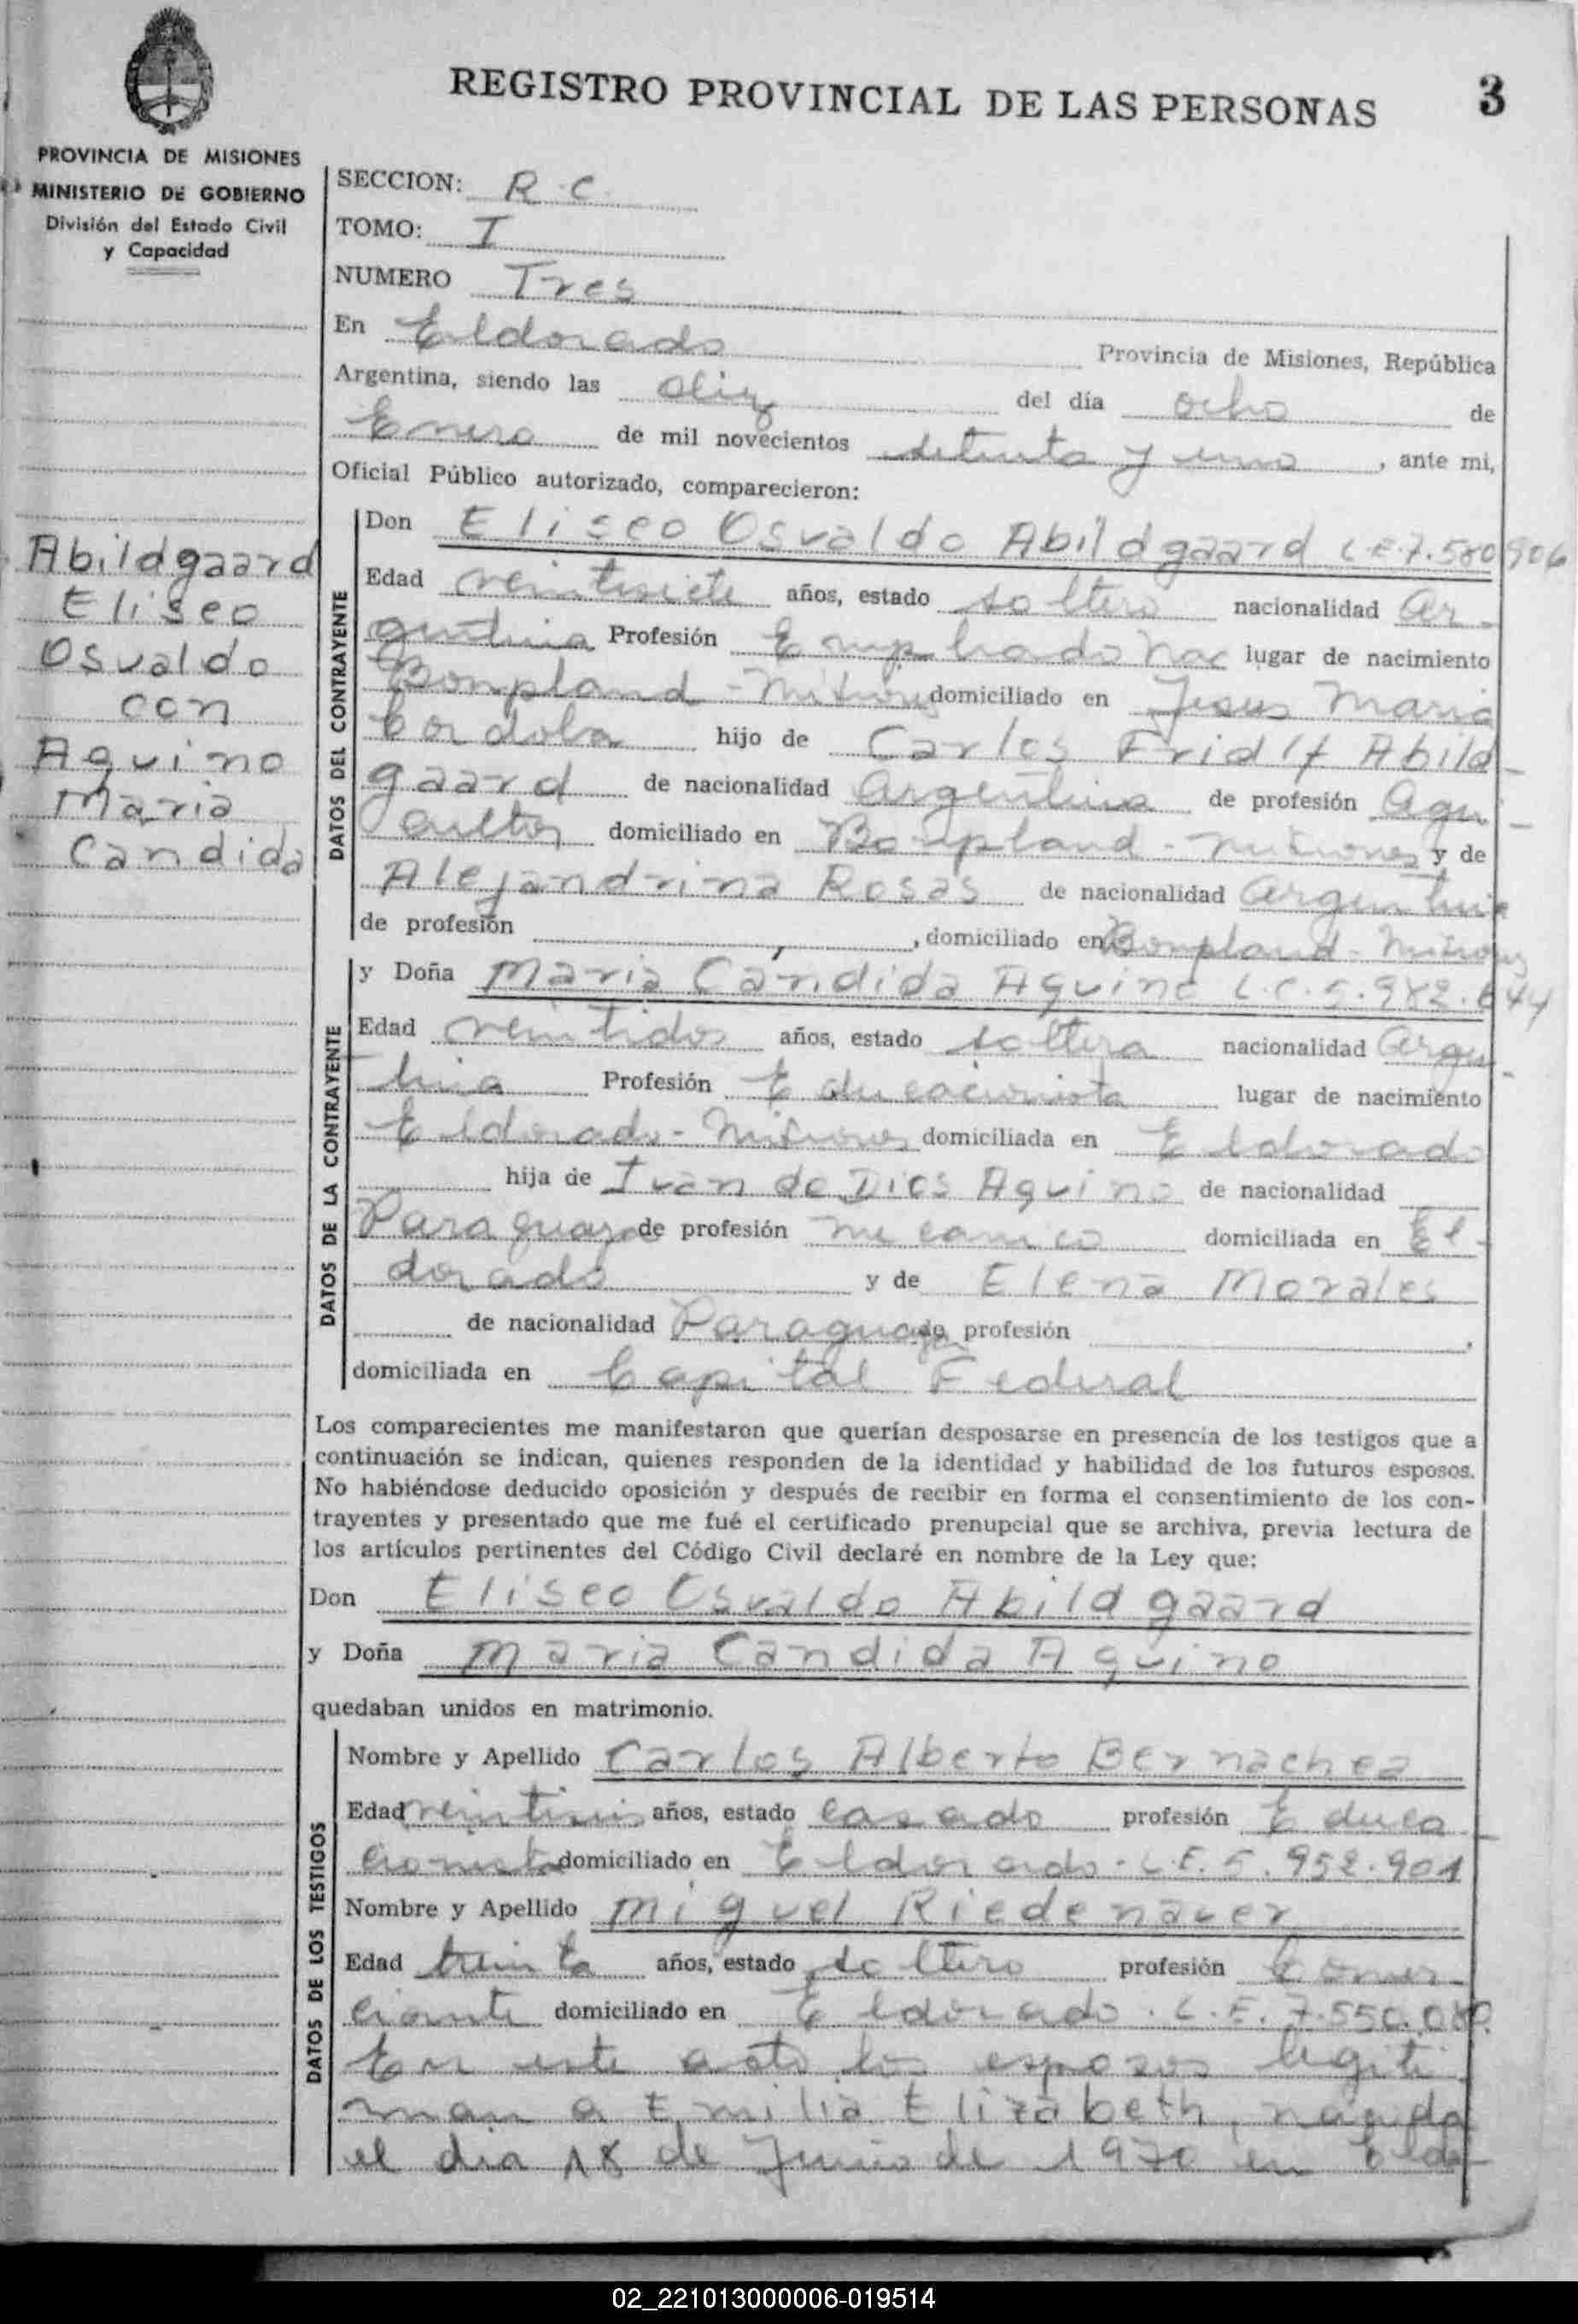 REGISTRO PROVINCIAL DE LAS PERSONAS 3
PROVINCIA DE MISIONES
MINISTERIO DE GOBIERNO
División del Estado Civil
y Capacidad
Abildgaard
Eliseo
Osvaldo
con
Aquino
Maria
Candida
SECCION: R.C.
TOMO: I
NUMERO Tres
En Eldorado Provincia de Misiones, República
Argentina, siendo las diez del día ocho de
Enero de mil novecientos setenta y uno, ante mi,
Oficial Público autorizado, comparecieron:
DATOS DEL CONTRAYENTE
Don Eliseo Osvaldo Abildgaard L.E.7.580906
Edad veintisiete años, estado soltero nacionalidad Ar-
gentina Profesión Empleado Nac lugar de nacimiento
Bonpland - Misiones domiciliado en Jesus Maria
Cordoba hijo de Carlos Abild-
gaard de nacionalidad Argentina de profesión Agri-
cultor domiciliado en Bonpland - Misiones y de
Alejandrina Rosas de nacionalidad Argentina
de profesión , domiciliado en Bonpland - Misiones
DATOS DE LA CONTRAYENTE
y Doña Maria Candida Aquino L.C.
Edad veintidos años, estado soltera nacionalidad Argen-
tina Profesión Educacionista lugar de nacimiento
Eldorado - Misiones domiciliada en Eldorado
hija de Ivan de Dios Aquino de nacionalidad
Paraguaya de profesión mecanico domiciliada en El-
dorado y de Elena Morales
de nacionalidad Paraguaya de profesión
domiciliada en Capital Federal
Los comparecientes me manifestaron que querían desposarse en presencia de los testigos que a
continuación se indican, quienes responden de la identidad y habilidad de los futuros esposos.
No habiéndose deducido oposición y después de recibir en forma el consentimiento de los con-
trayentes y presentado que me fué el certificado prenupcial que se archiva, previa lectura de
los artículos pertinentes del Código Civil declaré en nombre de la Ley que:
Don Eliseo Osvaldo Abildgaard
y Doña Maria Candida Aquino
quedaban unidos en matrimonio.
DATOS DE LOS TESTIGOS
Nombre y Apellido Carlos Alberto Bernachea
Edad años, estado casado profesión Educa-
cionista domiciliado en Eldorado - L.E. 5.952.901
Nombre y Apellido Miguel Riedenauer
Edad treinta años, estado soltero profesión Comer-
ciante domiciliado en Eldorado. L.E. 7.550.080.
En este acto los esposos legiti-
man a Emilia Elizabeth, nacida
el dia 18 de Junio de 1970 en Eldo-
02_221013000006-019514